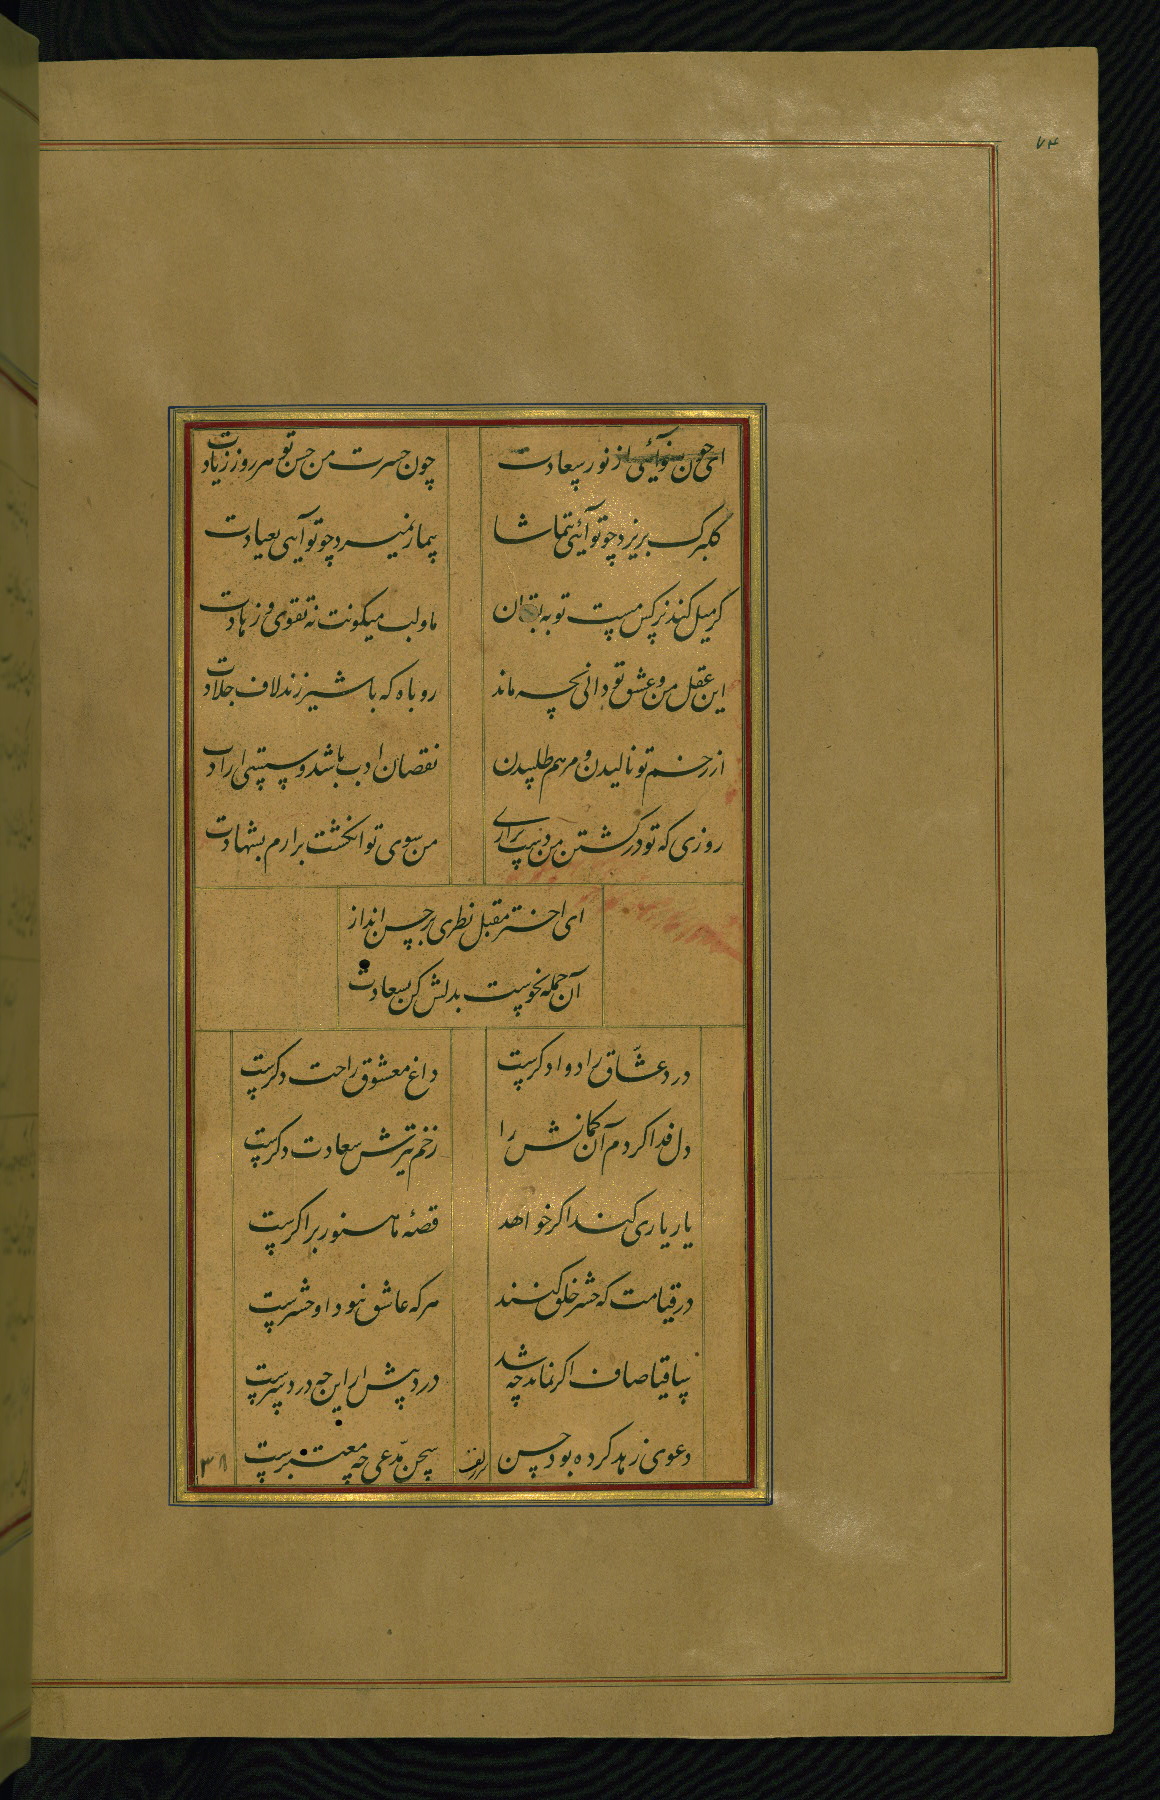 ۷۴
ای چون از نور سعادت
چون حسرت من حسن تو هر روز زیادت
گلبرگ بریزد چو تو آئی بتماشا
بیمار نمیرد چو تو آیی بعیادت
گر میل کند نرگس مست تو به
ما و لب میگونت نه تقوی و زهادت
این عقل من و عشق تو دانی بچه ماند
روباه که با شیر زند لاف جلادت
از زخم تو نالیدن و مرهم طلبیدن
نقصان ادب باشد و سستی ارادت
روزی که تو در کشتن من دست براری
من سوی تو انگشت برارم بشهادت
ای اختر مقبل نظری بر حسن انداز
آن جمله نحوست بدلش کن بسعادت
درد عشاق را دوا دگرست
داغ معشوق راحت دگرست
دل فدا کردم آن کمانش را
زخم تیرش سعادت دگرست
یار یاری کند اگر خواهد
قصهٔ ما هنوز برا گرست
در قیامت که حشر خلق کنند
هر که عاشق نبود او حشرست
ساقیا صاف اگر نماند چه شد
درد پیش ار این چه درد سرست
دعوی زهد کرده بود حسن
سخن مدعی چه معتبرست
۳۸